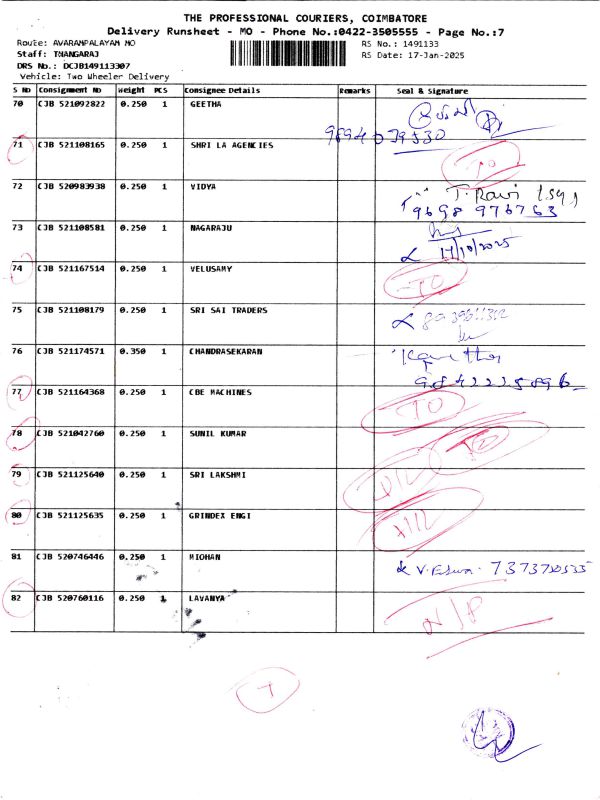 THE PROFESSIONAL COURIERS, COIMBATORE
Delivery Runsheet - MO - Phone No.:0422-3505555 - Page No.:7
Route: AVARAMPALAYAM MO
RS No.: 1491133
Staff: THANGARAJ
RS Date: 17-Jan-2025
DRS No.: DCJB149113307
Vehicle: Two Wheeler Delivery
S No Consignment No Weight PCS Consignee Details Remarks Seal & Signature
70 CJB 521092822 0.250 1 GEETHA
9694079530
71 CJB 521108165 0.250 1 SHRI LA AGENCIES TO
72 CJB 520983938 0.250 1 VIDYA T. Ravi
9698 976763
73 CJB 521108581 0.250 1 NAGARAJU
17/10/2025
74 CJB 521167514 0.250 1 VELUSAMY TO
75 CJB 521108179 0.250 1 SRI SAI TRADERS
76 CJB 521174571 0.350 1 CHANDRASEKARAN
77 CJB 521164368 0.250 1 CBE MACHINES TO
78 CJB 521042760 0.250 1 SUNIL KUMAR TO
79 CJB 521125640 0.250 1 SRI LAKSHMI
80 CJB 521125635 0.250 1 GRINDEX ENGI
81 CJB 520746446 0.250 1 MIOHAN
82 CJB 520760116 0.250 1 LAVANYA N/P
7